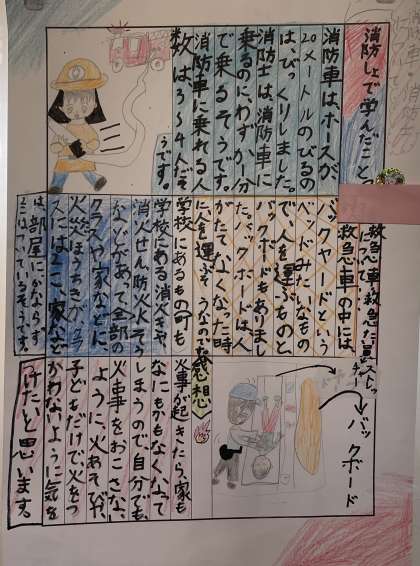 消防しょで学んだこと
消防車は、ホースが
20メートルのびるの
は、びっくりしました。
消防士は、消防車に
乗るのに、わずか一分
で乗るそうです。
消防車に乗れる人
数は3〜4人だそ
うです。
救急車
救急車の中には、
バックヤードという
バッドみたいなもの
で、人を運ぶものと、
バックボードもありまし
た。バックボードは人
がたおれなくなった時
に人を運ぶそうなのです。
学校にあるもの町も
学校にある消火きや、
消火せん防火水そう
などがあって全部の
クラスや家などに
火災ほうちきがクラ
スにはよこ、家などに
は部屋にかならず
2こはついているそうです。
感想
火事が起きたら、家も
なにもかもなくなって
しまうので自分でも、
火事をおこさない
ように、火あそびや、
子どもだけで火をつ
かわないように気を
つけたいと思います。
バックボード